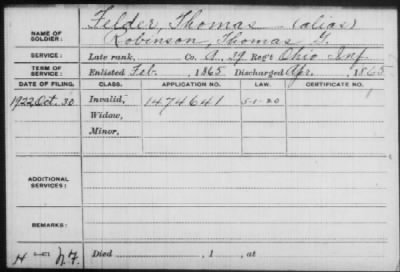 Felder, Thomas (alias)
NAME OF SOLDIER: Robinson, Thomas G.
SERVICE: Late rank, Co. A, 29 Reg't Ohio Inf
TERM OF SERVICE: Enlisted Feb., 1865 Discharged Apr., 1865
DATE OF FILING. CLASS. APPLICATION NO. LAW. CERTIFICATE NO.
1922 Oct. 30 Invalid, 1474641 5-1-20
Widow,
Minor,
ADDITIONAL SERVICES:
REMARKS:
Died , 1 , at